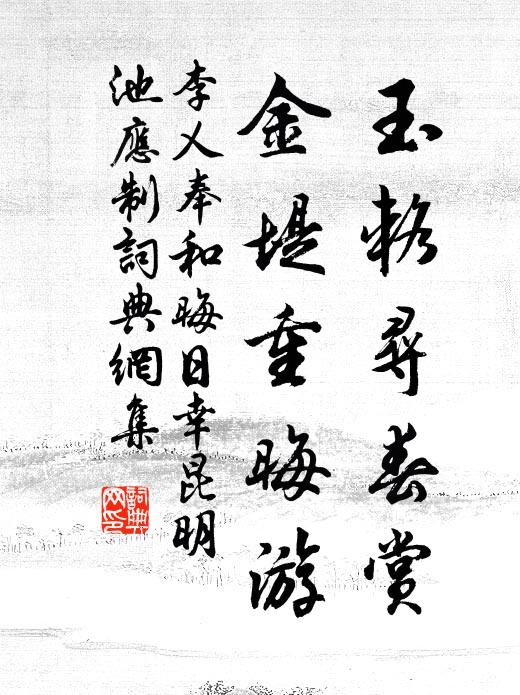 玉輅尋春賞
金堤重晦游
李乂奉和晦日幸昆明
池應制詞典網集
詞典
网印